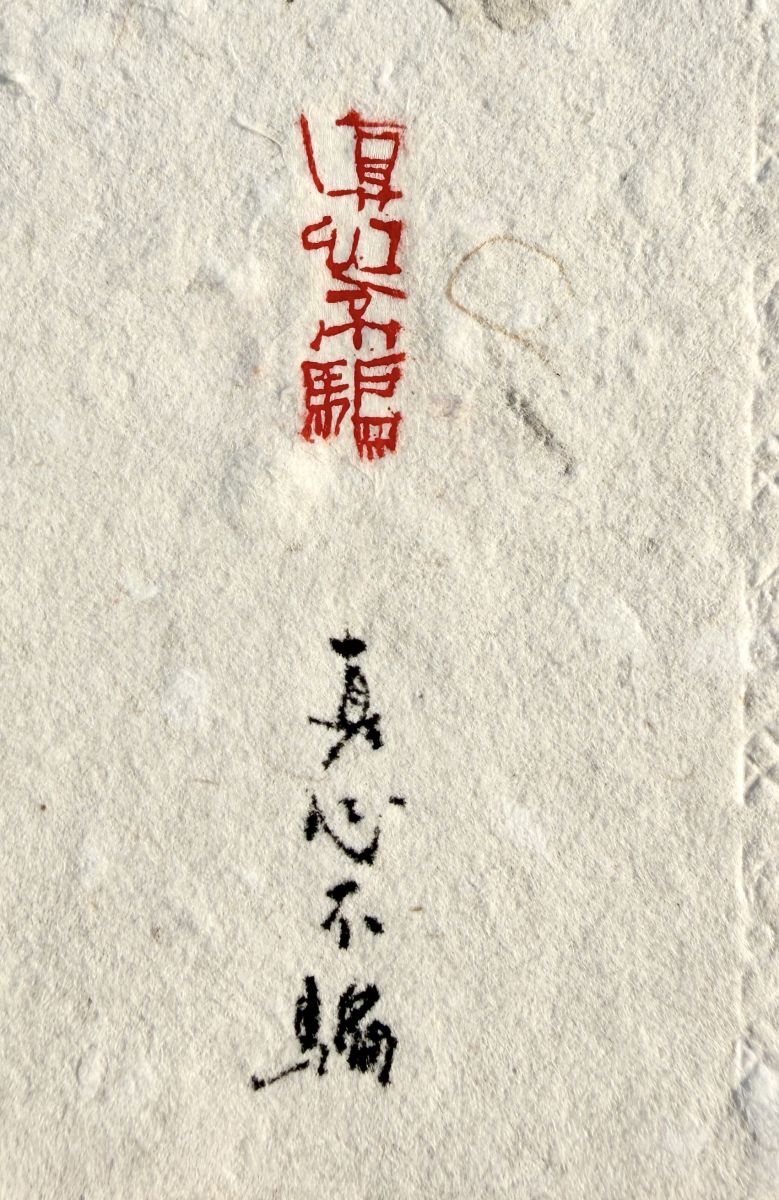 真心不騙
真心不騙